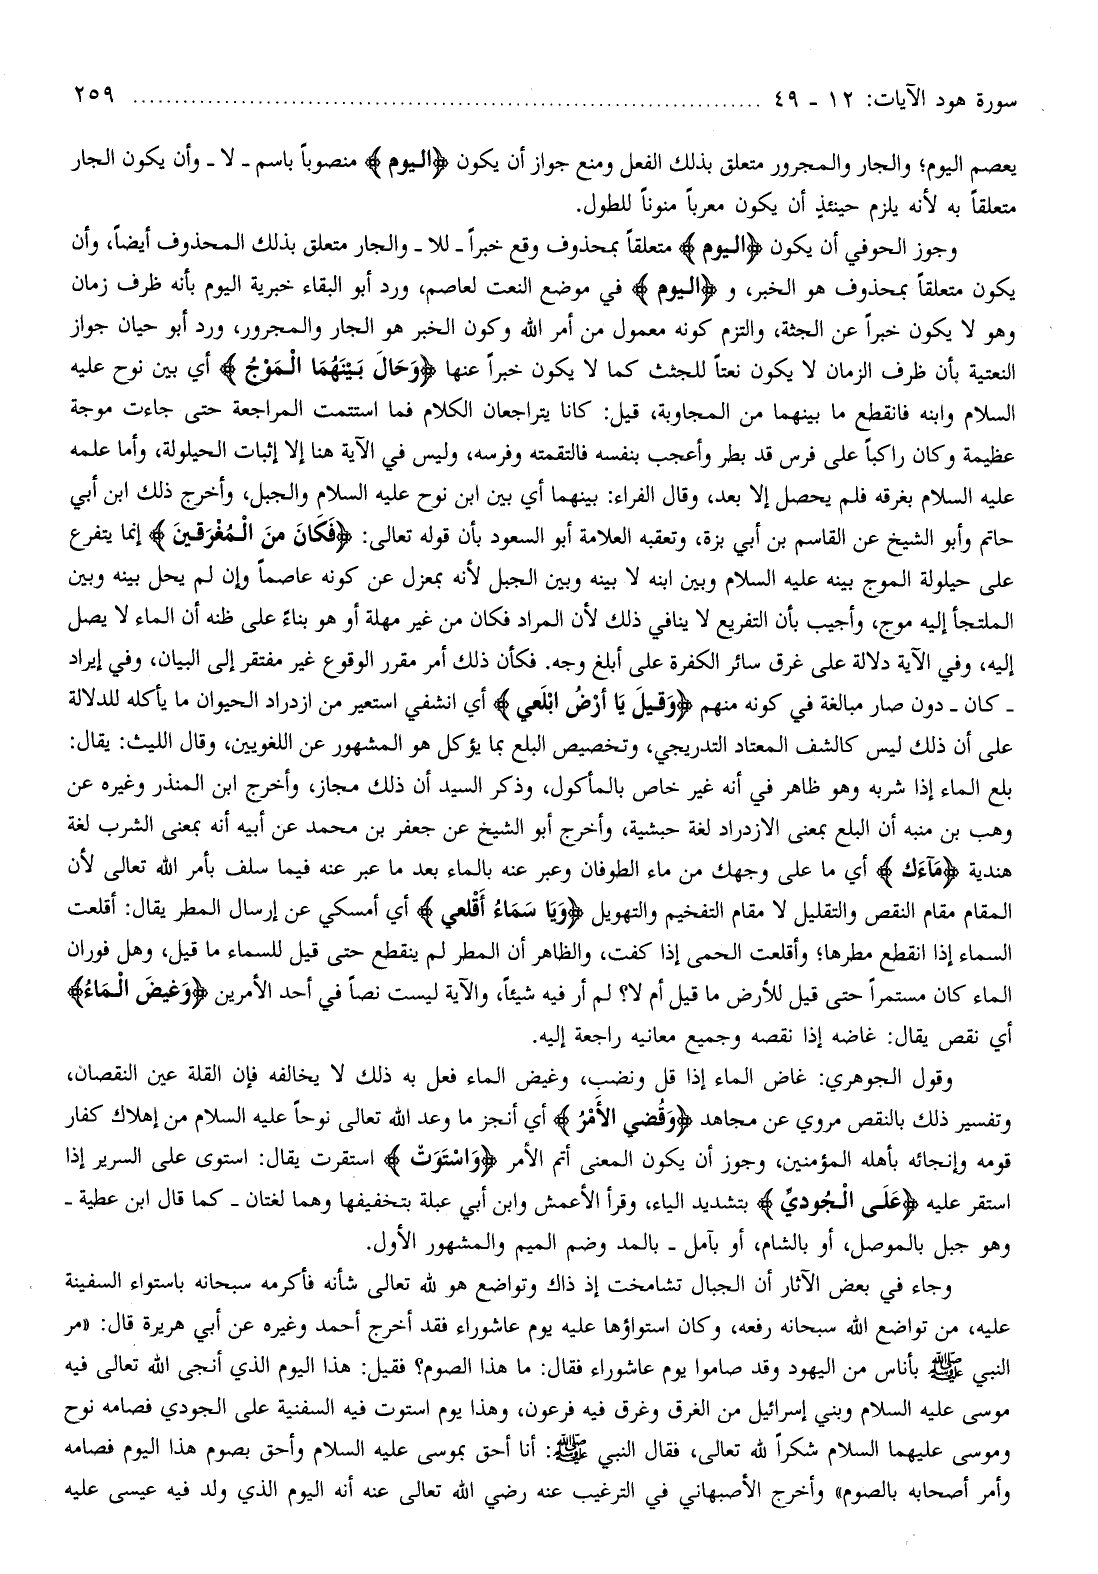 سورة هود الآيات: ١٢ ـ ٤٩ ........................................................................... ٢٥٩
يعصم اليوم؛ والجار والمجرور متعلق بذلك الفعل ومنع جواز أن يكون ﴿اليوم﴾ منصوباً باسم ـ لا ـ وأن يكون الجار
متعلقاً به لأنه يلزم حينئذٍ أن يكون معرباً منوناً للطول.
وجوز الحوفي أن يكون ﴿اليوم﴾ متعلقاً بمحذوف وقع خبراً ـ للا ـ والجار متعلق بذلك المحذوف أيضاً، وأن
يكون متعلقاً بمحذوف هو الخبر، و ﴿اليوم﴾ في موضع النعت لعاصم، ورد أبو البقاء خبرية اليوم بأنه ظرف زمان
وهو لا يكون خبراً عن الجثة، والتزم كونه معمول من أمر الله وكون الخبر هو الجار والمجرور، ورد أبو حيان جواز
النعتية بأن ظرف الزمان لا يكون نعتاً للجثث كما لا يكون خبراً عنها ﴿وَحَالَ بَيْنَهُمَا الْمَوْجُ﴾ أي بين نوح عليه
السلام وابنه فانقطع ما بينهما من المجاوبة، قيل: كانا يتراجعان الكلام فما استتمت المراجعة حتى جاءت موجة
عظيمة وكان راكباً على فرس قد بطر وأعجب بنفسه فالتقمته وفرسه، وليس في الآية هنا إلا إثبات الحيلولة، وأما علمه
عليه السلام بغرقه فلم يحصل إلا بعد، وقال الفراء: بينهما أي بين ابن نوح عليه السلام والجبل، وأخرج ذلك ابن أبي
حاتم وأبو الشيخ عن القاسم بن أبي بزة، وتعقبه العلامة أبو السعود بأن قوله تعالى: ﴿فَكَانَ منَ الْمُغْرَقينَ﴾ إنما يتفرع
على حيلولة الموج بينه عليه السلام وبين ابنه لا بينه وبين الجبل لأنه بمعزل عن كونه عاصماً وإن لم يحل بينه وبين
الملتجأ إليه موج، وأجيب بأن التفريع لا ينافي ذلك لأن المراد فكان من غير مهلة أو هو بناءً على ظنه أن الماء لا يصل
إليه، وفي الآية دلالة على غرق سائر الكفرة على أبلغ وجه. فكأن ذلك أمر مقرر الوقوع غير مفتقر إلى البيان، وفي إيراد
ـ كان ـ دون صار مبالغة في كونه منهم ﴿وَقيلَ يَا أرْضُ ابْلَعي﴾ أي انشفي استعير من ازدراد الحيوان ما يأكله للدلالة
على أن ذلك ليس كالشف المعتاد التدريجي، وتخصيص البلع بما يؤكل هو المشهور عن اللغويين، وقال الليث: يقال:
بلع الماء إذا شربه وهو ظاهر في أنه غير خاص بالمأكول، وذكر السيد أن ذلك مجاز، وأخرج ابن المنذر وغيره عن
وهب بن منبه أن البلع بمعنى الازدراد لغة حبشية، وأخرج أبو الشيخ عن جعفر بن محمد عن أبيه أنه بمعنى الشرب لغة
هندية ﴿مَآءَك﴾ أي ما على وجهك من ماء الطوفان وعبر عنه بالماء بعد ما عبر عنه فيما سلف بأمر الله تعالى لأن
المقام مقام النقص والتقليل لا مقام التفخيم والتهويل ﴿وَيَا سَمَاءُ أَقْلعي﴾ أي أمسكي عن إرسال المطر يقال: أقلعت
السماء إذا انقطع مطرها؛ وأقلعت الحمى إذا كفت، والظاهر أن المطر لم ينقطع حتى قيل للسماء ما قيل، وهل فوران
الماء كان مستمراً حتى قيل للأرض ما قيل أم لا؟ لم أر فيه شيئاً، والآية ليست نصاً في أحد الأمرين ﴿وَغيضَ الْمَاءُ﴾
أي نقص يقال: غاضه إذا نقصه وجميع معانيه راجعة إليه.
وقول الجوهري: غاض الماء إذا قل ونضب، وغيض الماء فعل به ذلك لا يخالفه فإن القلة عين النقصان،
وتفسير ذلك بالنقص مروي عن مجاهد ﴿وَقُضي الأَمْرُ﴾ أي أنجز ما وعد الله تعالى نوحاً عليه السلام من إهلاك كفار
قومه وإنجائه بأهله المؤمنين، وجوز أن يكون المعنى أتم الأمر ﴿وَاسْتَوَتْ﴾ استقرت يقال: استوى على السرير إذا
استقر عليه ﴿عَلَى الْجُوديِّ﴾ بتشديد الياء، وقرأ الأعمش وابن أبي عبلة بتخفيفها وهما لغتان ـ كما قال ابن عطية ـ
وهو جبل بالموصل، أو بالشام، أو بآمل ـ بالمد وضم الميم والمشهور الأول.
وجاء في بعض الآثار أن الجبال تشامخت إذ ذاك وتواضع هو لله تعالى شأنه فأكرمه سبحانه باستواء السفينة
عليه، من تواضع الله سبحانه رفعه، وكان استواؤها عليه يوم عاشوراء فقد أخرج أحمد وغيره عن أبي هريرة قال: «مر
النبي ﷺ بأناس من اليهود وقد صاموا يوم عاشوراء فقال: ما هذا الصوم؟ فقيل: هذا اليوم الذي أنجى الله تعالى فيه
موسى عليه السلام وبني إسرائيل من الغرق وغرق فيه فرعون، وهذا يوم استوت فيه السفنية على الجودي فصامه نوح
وموسى عليهما السلام شكراً لله تعالى، فقال النبي ﷺ: أنا أحق بموسى عليه السلام وأحق بصوم هذا اليوم فصامه
وأمر أصحابه بالصوم» وأخرج الأصبهاني في الترغيب عنه رضي الله تعالى عنه أنه اليوم الذي ولد فيه عيسى عليه